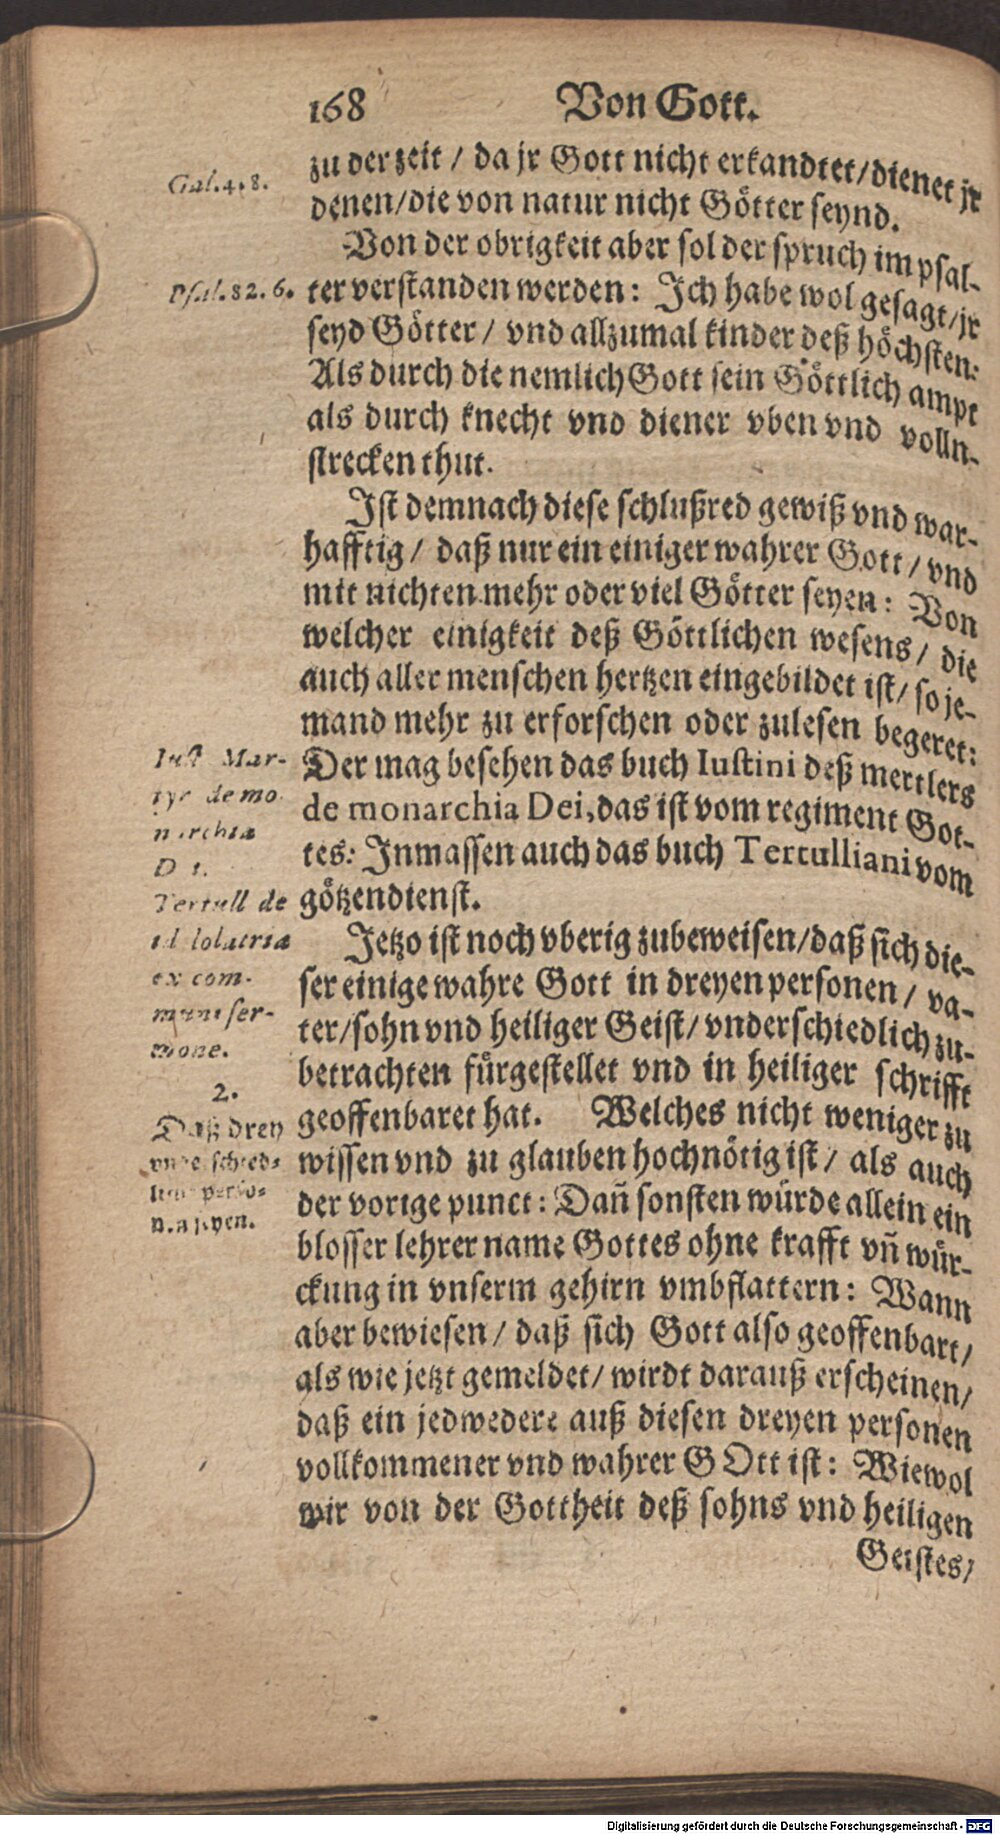 168 Von Gott.
zu der zeit / da jr Gott nicht erkandtet/dienet jr
Gal. 4. 8.
denen/die von natur nicht Götter seynd.
Von der obrigkeit aber sol der spruch im psal-
Psal. 82. 6.
ter verstanden werden: Ich habe wol gesagt/jr
seyd Götter / vnd allzumal kinder deß höchsten:
Als durch die nemlich Gott sein Göttlich ampt
als durch knecht vnd diener vben vnd volln-
strecken thut.
Ist demnach diese schlußred gewiß vnd war-
hafftig / daß nur ein einiger wahrer Gott / vnd
mit nichten mehr oder viel Götter seyen: Von
welcher einigkeit deß Göttlichen wesens / die
auch aller menschen hertzen eingebildet ist/ so je-
mand mehr zu erforschen oder zulesen begeret:
Der mag besehen das buch Iustini deß mertlers
de monarchia Dei, das ist vom regiment Got-
tes: Inmassen auch das buch Tertulliani vom
götzendienst.
Iust Mar-
tyr de mo
narchia
D i.
Tertull de
idlolatria
ex com-
muni ser-
mone.
Jetzo ist noch vberig zubeweisen/daß sich die-
ser einige wahre Gott in dreyen personen / va-
ter/sohn vnd heiliger Geist/ vnderschiedlich zu-
betrachten fürgestellet vnd in heiliger schrifft
geoffenbaret hat. Welches nicht weniger zu
wissen vnd zu glauben hochnötig ist / als auch
der vorige punct: Dañ sonsten würde allein ein
blosser lehrer name Gottes ohne krafft vñ wür-
ckung in vnserm gehirn vmbflattern: Wann
aber bewiesen / daß sich Gott also geoffenbart/
als wie jetzt gemeldet/ wirdt darauß erscheinen/
daß ein jedwedere auß diesen dreyen personen
vollkommener vnd wahrer GOtt ist: Wiewol
wir von der Gottheit deß sohns vnd heiligen
2.
Daß drey
vnderschied-
liche perso-
nen seyen.
Geistes/
Digitalisierung gefördert durch die Deutsche Forschungsgemeinschaft - DFG